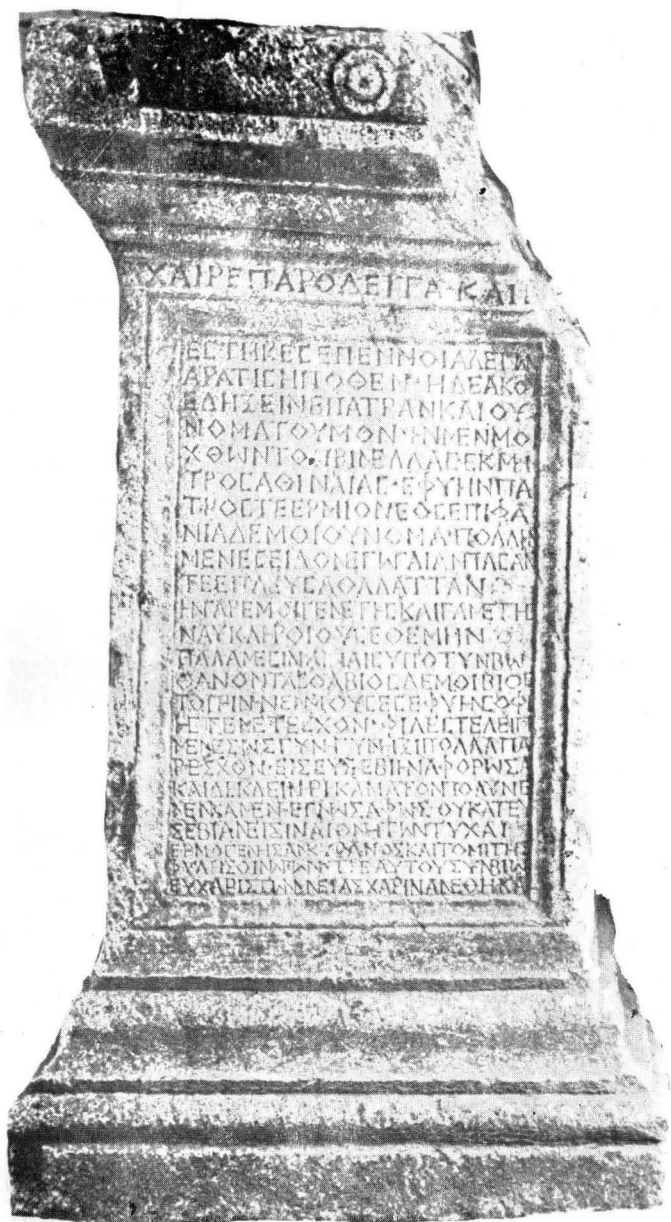 ΧΑΙΡΕ ΠΑΡΟΔΕΙΤΑ · ΚΑΙ Π
ΕΣΤΗΚΕΣ ΕΠ ΕΝΝΟΙΑ ΛΕΓΩ
ΑΡΑ ΤΙΣ Η ΠΟΘΕΝ · ΗΔΕ ΑΚΟΥ
Ε ΔΗ ΞΕΙΝΕ ΠΑΤΡΑΝ ΚΑΙ ΟΥ
ΝΟΜΑ ΤΟΥΜΟΝ · ΗΝ ΜΕΝ ΜΟ
ΧΘΩΝ ΤΟ ΠΡΙΝ ΕΛΛΑΣ · ΕΚ ΜΗ
ΤΡΟΣ ΑΘΙΝΑΙΑΣ · ΕΦΥΗΝ ΠΑ
ΤΡΟΣ ΤΕ ΕΡΜΙΟΝΕΟΣ ΕΠΙΦΑ
ΝΙΑ Δ ΕΜΟΙ ΟΥΝΟΜΑ · ΠΟΛΛΗ
ΜΕΝ ΕΣΕΙΔΟΝ ΕΓΩ ΓΑΙΑΝ ΠΑΣΑΝ
ΤΕ ΕΠΛΕΥΣΑ ΘΑΛΑΤΤΑΝ
ΗΝ ΓΑΡ ΕΜΟΙ ΓΕΝΕΤΗΣ ΚΑΙ ΓΑΜΕΤΗ
ΝΑΥΚΛΗΡΟΙ ΟΥΣ ΕΘΕΜΗΝ
ΠΑΛΑΜΕΣΙΝ ΑΓΝΑΙΣ ΥΠΟ ΤΥΝΒΩ
ΘΑΝΟΝΤΑΣ ΟΛΒΙΟΣ Δ ΕΜΟΙ ΒΙΟΣ
ΤΟ ΠΡΙΝ ΕΝ ΜΟΥΣΕΣ ΕΦΥΗ ΣΟΦΙ
ΗΣ ΤΕ ΜΕΤΕΣΧΟΝ · ΦΙΛΕΣ ΤΕ ΛΕΙΠ
ΜΕΝΕΣ ΩΣ ΓΥΝΗ ΓΥΝΗΞΙ ΠΟΛΛΑ ΠΑ
ΡΕΣΧΟΝ · ΕΙΣ ΕΥΣΕΒΙΗΝ ΑΦΟΡΩΣΑ
ΚΑΙ ΔΕ ΚΛΕΙΝΗΡΙ ΚΑΜΑΤΟΝ
ΕΓΝΩ ΣΑΦΩΣ ΟΥ ΚΑΤ ΕΥ
ΣΕΒΙΑΝ ΕΙΣΙΝ ΑΙ ΘΝΗΤΩΝ ΤΥΧΑΙ
ΕΡΜΟΓΕΝΗΣ ΑΝΚΥΡΑΝΟΣ ΚΑΙ ΤΟΜΙΤΗΣ
ΦΥΛΗΣ ΟΙΝΩΠΩΝ ΤΗ ΕΑΥΤΟΥ ΣΥΝΒΙΩ
ΕΥΧΑΡΙΣΤΩΝ ΜΝΕΙΑΣ ΧΑΡΙΝ ΑΝΕΘΗΚΑ